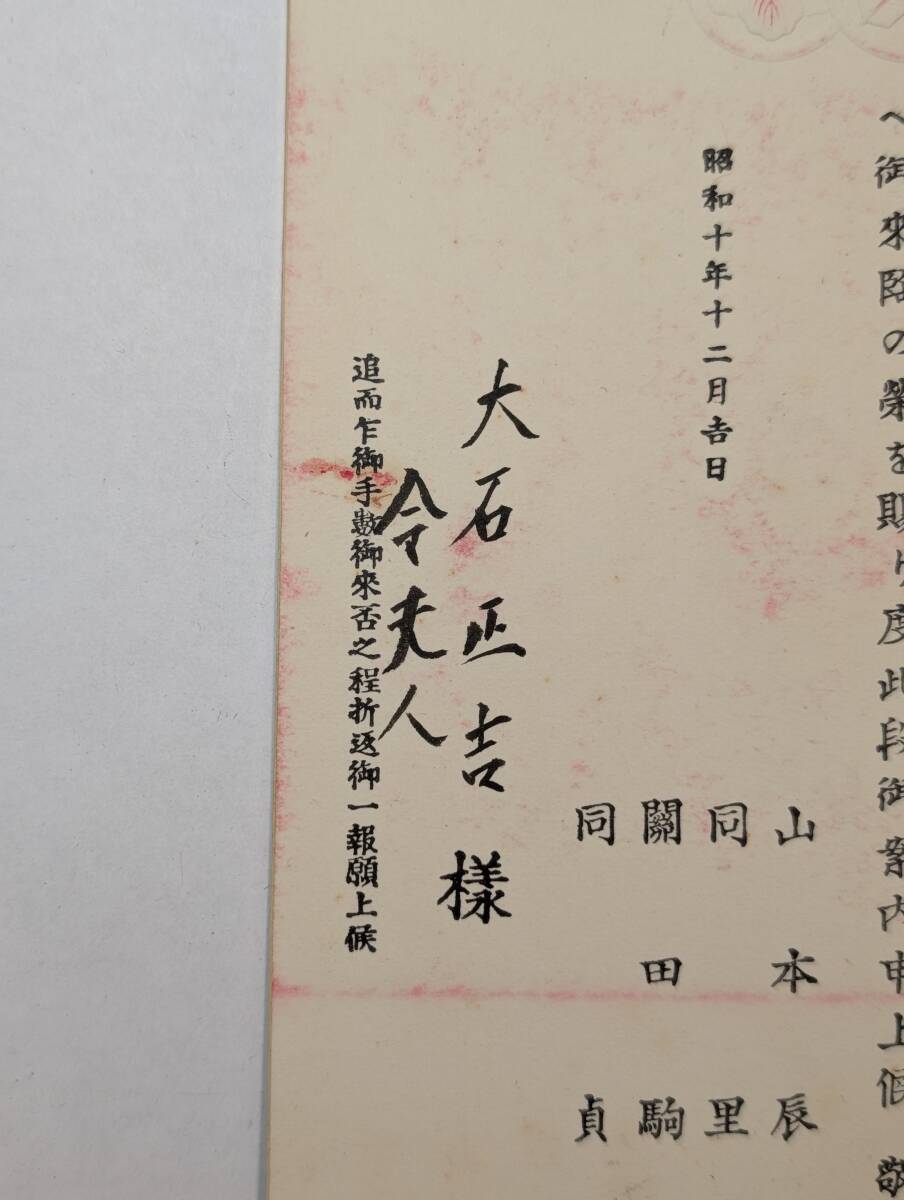 へ御來臨の榮を賜り度此段御案内申上候 敬
昭和十年十二月吉日
山本辰
同里
關田駒
同貞
大石正吉樣
令夫人
追而乍御手數御來否之程折返御一報願上候